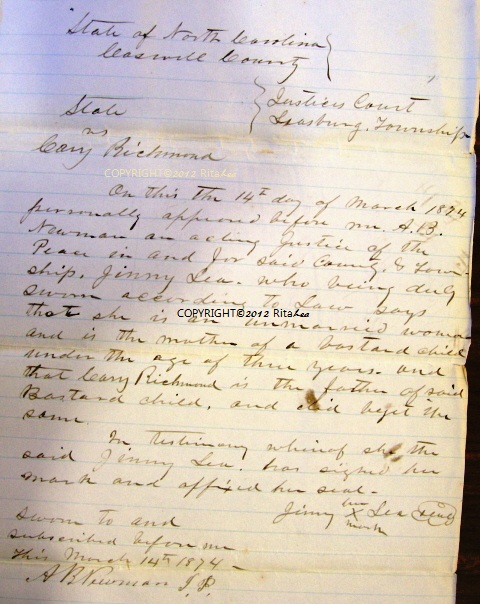 State of North Carolina
Caswell County
Justices Court
Leasburg Township
State
vs
Cary Richmond
COPYRIGHT©2012 RitaLea
On this the 14th day of March 1874
personally appeared before me A.B.
Newman an acting Justice of the
Peace in and for said County & Town-
ship, Jinny Lea. who being duly
sworn according to Law says
COPYRIGHT©2012 RitaLea
that she is an unmarried woman
and is the mother of a bastard child
under the age of three years. and
that Cary Richmond is the father of said
Bastard child, and did beget the
same.
In testimony whereof she the
said Jinny Lea. has signed her
mark and affixed her seal-
Jinny her X mark Lea (seal)
sworn to and
subscribed before me
this March 14th 1874-
A B Newman J.P.